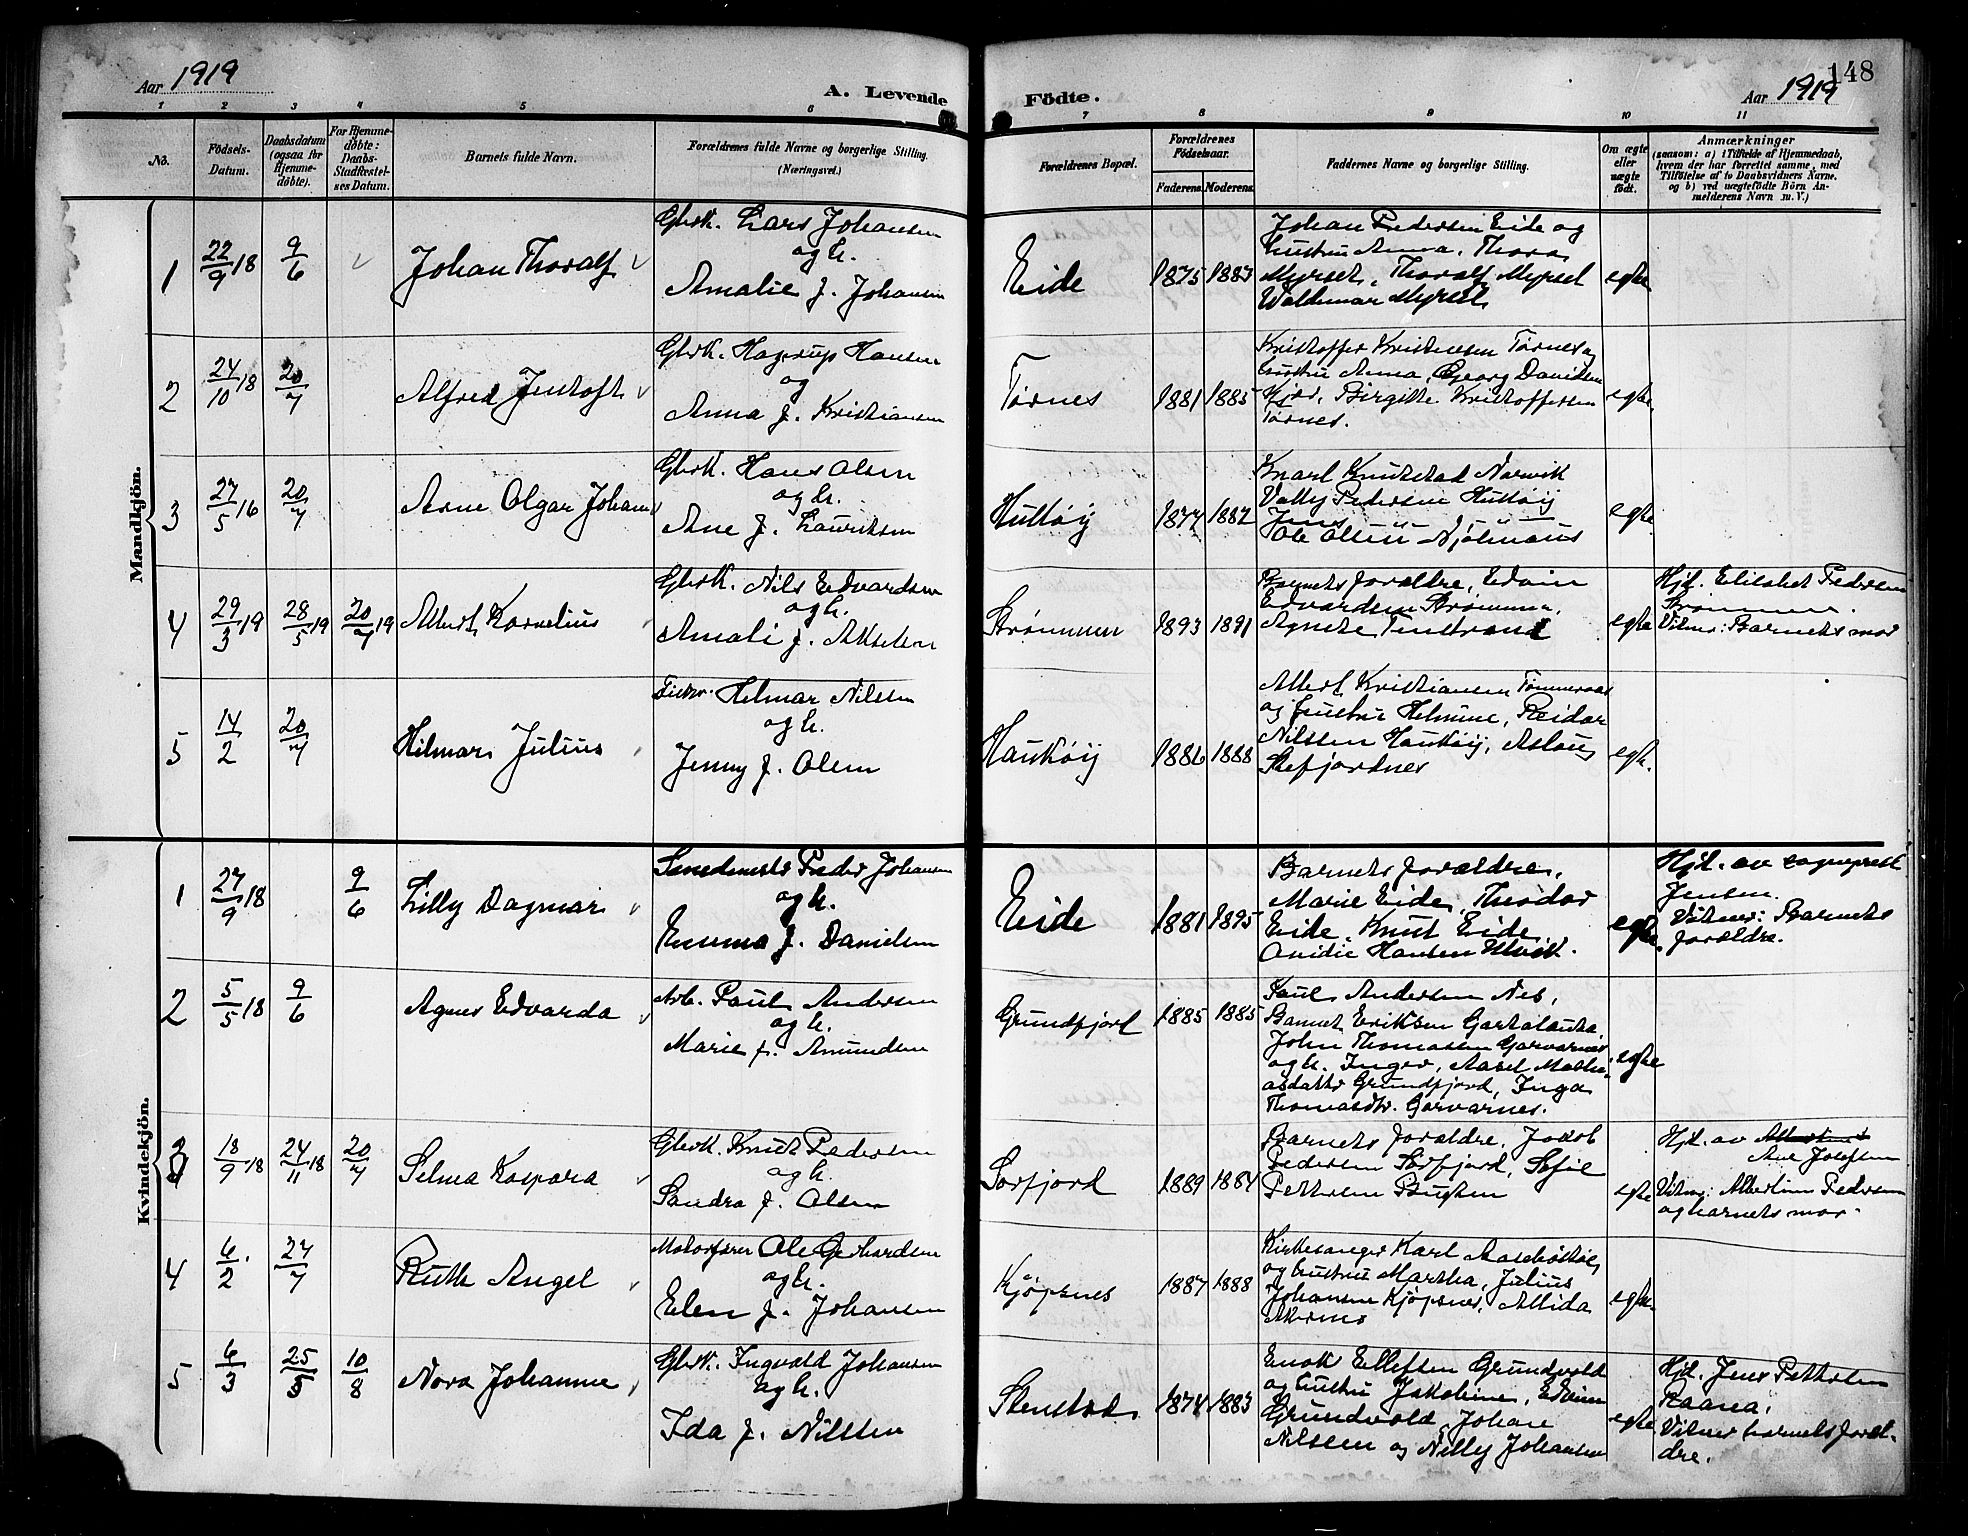 148
Aar 1919
A. Levende Födte.
Aar 1919
1 2 3 4 5 6 7 8 9 10 11
No.
Födsels-Datum.
Daabsdatum (ogsaa for Hjemme-döbte).
For Hjemme-döbte: Daabs-Stadfæstel-ses Datum.
Barnets fulde Navn.
Forældrenes fulde Navne og borgerlige Stilling. (Næringsvei.)
Forældrenes Bopæl.
Forældrenes Födselsaar.
Faderens. Moderens.
Faddernes Navne og borgerlige Stilling.
Om ægte eller uægte födt.
Anmærkninger
(saasom: a) i Tilfælde af Hjemmedaab,
hvem der har forrettet samme, med
Tilföielse af to Daabsvidners Navne.
og b) ved uægtefödte Börn An-
melderens Navn m. V.)
Mandkjön.
1 22/9 18 9/6 Johan Thoralf
Gbrk. Lars Johansen
og h.
Amalie f. Johansen
Eide 1875 1883
Johan Pedersen Eide og
hustru Anna, Thora
Myrset, Thoralf Myrset
Waldemar Myrset
egte
2 24/10 18 20/7 Alfred Jentoft
Gbrk. Hagerup Hansen
og
Anna f. Kristiansen
Tørnes 1881 1885
Kristoffer Kristensen Tørnes og
hustru Anna, Georg Daniksen
Kjør, Birgitte Kristoffersen
Tørnes.
egte
3 27/5 16 20/7 Arne Olgar Johan
Gbrk. Hans Olsen
og h.
Ane f. Lauriksen
Huttøy 1877 1882
Knarl Knutstad Narvik
Valby Pedersen Huttøy
Jens
Ole Olsen
egte.
4 29/3 19 28/5 19 20/7 19 Albert Kornelius
Gbrk. Nils Edvardsen
og h.
Amali f. Akselsen
Strømmen 1893 1891
Barnets forældre, Edvin
Edvardsen Strømmen,
Agnete Finstrand
egte
Hjd. Elisabet Pedersen
Strømmen.
Vitner: Barnets mor
5 14/2 20/7 Hilmar Julius
Fisker Helmar Nilsen
og h.
Jenny f. Olsen
Haukøy 1886 1888
Albert Kristiansen Tømmeraas
og hustru Helmine, Reidar
Nilssen Haukøy, Aslaug
Stefjordnes
egte.
Kvindekjön.
1 27/9 18 9/6 Lilly Dagmar
Smedmester Peder Johansen
og h.
Emma f. Danielsen
Eide 1881 1895
Barnets forældre,
Marie Eide, Theodor
Eide, Knut Eide
Ovidie Hansen Ulvik.
egte.
Hjd. av sogneprest
Jensen.
Vitner: Barnets
forældre.
2 5/5 18 9/6 Agnes Edvarda
Arb. Paul Andersen
og h.
Marie f. Amundsen
Grundfjord 1885 1885
Paul Andersen Nes,
Eriksen
John Thomassen Garvarnes
og h. Inger, Aasel Mathi-
asdatter Grundfjord, Inga
Thomasdtr. Garvarnes.
egte
3 18/9 18 24/11 18 20/7 Selma Kaspara
Gbrk. Knut Pedersen
og h.
Sandra f. Olsen
Sørfjord 1889 1884
Barnets forældre, Jakob
Pedersen Sørfjord, Sofie
Pettersen
egte
Hjd. av
Ane Josefsen
Vitner: Albertine Pedersen
og barnets mor.
4 6/2 27/7 Ruth Angel
Motorfører Ole Gerhardsen
og h.
Elen f. Johansen
Kjøpsnes 1887 1888
Kirkesanger Karl
og hustru Martha, Julius
Johansen Kjøpsnes, Alida
egte
5 6/3 25/5 10/8 Nora Johanne
Gbrk. Ingvald Johansen
og h.
Ida f. Nilsen
Stenstad 1874 1883
Enok Ellefsen Grundvold
og hustru Jakobine, Edvin
Grundvold, Johan
Nilssen og Nelly Johansen
egte
Hjd. Jens Pettersen
Raana,
Vitner barnets foræl-
dre.